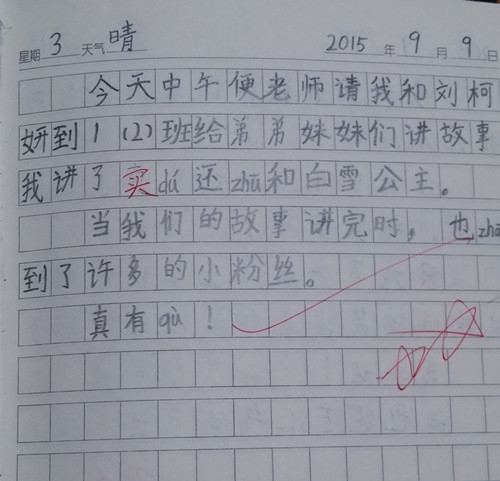 星期 3 天气 晴 2015 年 9 月 9 日
今天中午便老师请我和刘柯
妍到1(2)班给弟弟妹妹们讲故事
我讲了买dú还zhū和白雪公主。
当我们的故事讲完时，也zhǎ
到了许多的小粉丝。
真有qù！